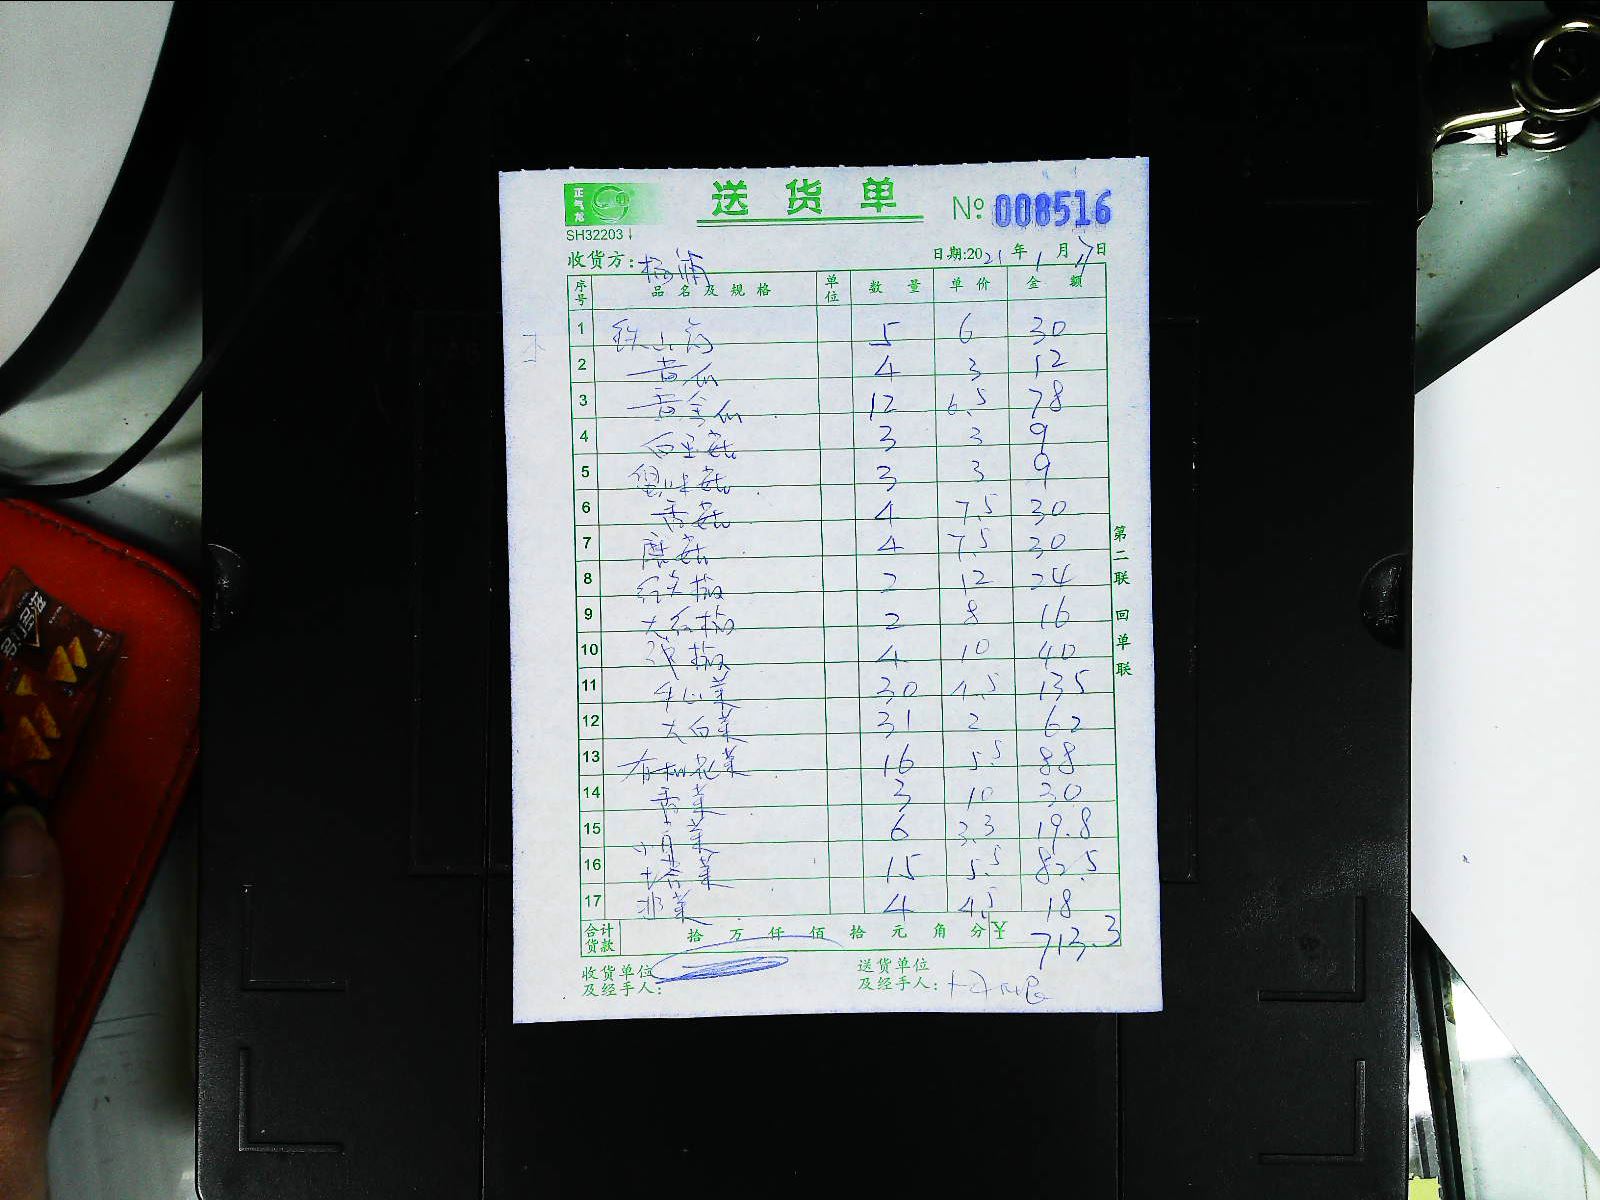 正气龙
送货单
№ 008516
SH32203
收货方: 杨浦
日期:2021年1月17日
序号 品名及规格 单位 数量 单价 金额
1 铁山药 5 6 30
2 黄瓜 4 3 12
3 黄金瓜 12 6.5 78
4 白玉菇 3 3 9
5 蟹味菇 3 3 9
6 香菇 4 7.5 30
7 蘑菇 4 7.5 30
8 红尖椒 2 12 24
9 大红椒 2 8 16
10 洋椒 4 10 40
11 牛心菜 30 4.5 135
12 大白菜 31 2 62
13 有机花菜 16 5.5 88
14 香菜 3 10 30
15 小青菜 6 3.3 19.8
16 塔菜 15 5.5 82.5
17 韭菜 4 4.5 18
合计货款 拾 万 仟 佰 拾 元 角 分 ¥ 713.3
收货单位及经手人:
送货单位及经手人:
第二联 回单联